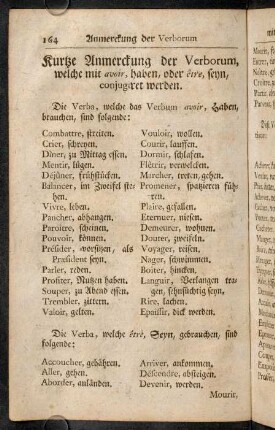 164 Anmerckung der Verborum
Kurtze Anmerckung der Verborum,
welche mit avoir, haben, oder être, seyn,
conjugiret werden.
Die Verba, welche das Verbum avoir, Haben,
brauchen, sind folgende:
Combattre, streiten. Vouloir, wollen.
Crier, schreyen. Courir, lauffen.
Dîner, zu Mittag essen. Dormir, schlafen.
Mentir, lügen. Flétrir, verwelcken.
Déjûner, frühstücken. Marcher, treten, gehen.
Balancer, im Zweifel ste- Promener, spatzieren füh-
hen. ren.
Vivre, leben. Plaire, gefallen.
Pancher, abhangen. Eternuer, niesen.
Paroître, scheinen. Demeurer, wohnen.
Pouvoir, können. Douter, zweifeln.
Présider, vorsitzen, als Voyager, reisen.
Præsident seyn. Nager, schwimmen.
Parler, reden. Boiter, hincken.
Profiter, Nutzen haben. Languir, Verlangen tra-
Souper, zu Abend essen. gen, sehnsüchtig seyn.
Trembler, zittern. Rire, lachen.
Valoir, gelten. Epaissir, dick werden.
Die Verba, welche être, Seyn, gebrauchen, sind
folgende:
Accoucher, gebähren. Arriver, ankommen,
Aller, gehen. Déscendre, absteigen.
Aborder, anländen. Devenir, werden.
Mourir,